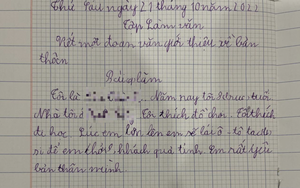 Thứ Sáu ngày 21 tháng 10 năm 2022
Tập Làm văn
Viết một đoạn văn giới thiệu về bản
thân
Bài làm
Tôi là Năm nay tôi tuổi
Nhà tôi ở Tôi thích đồ chơi. Tôi thích
đi học. Lúc em lớn lên em sẽ lái ô-tô
sĩ để em khách quá tỉnh. Em rất yêu
bản thân mình